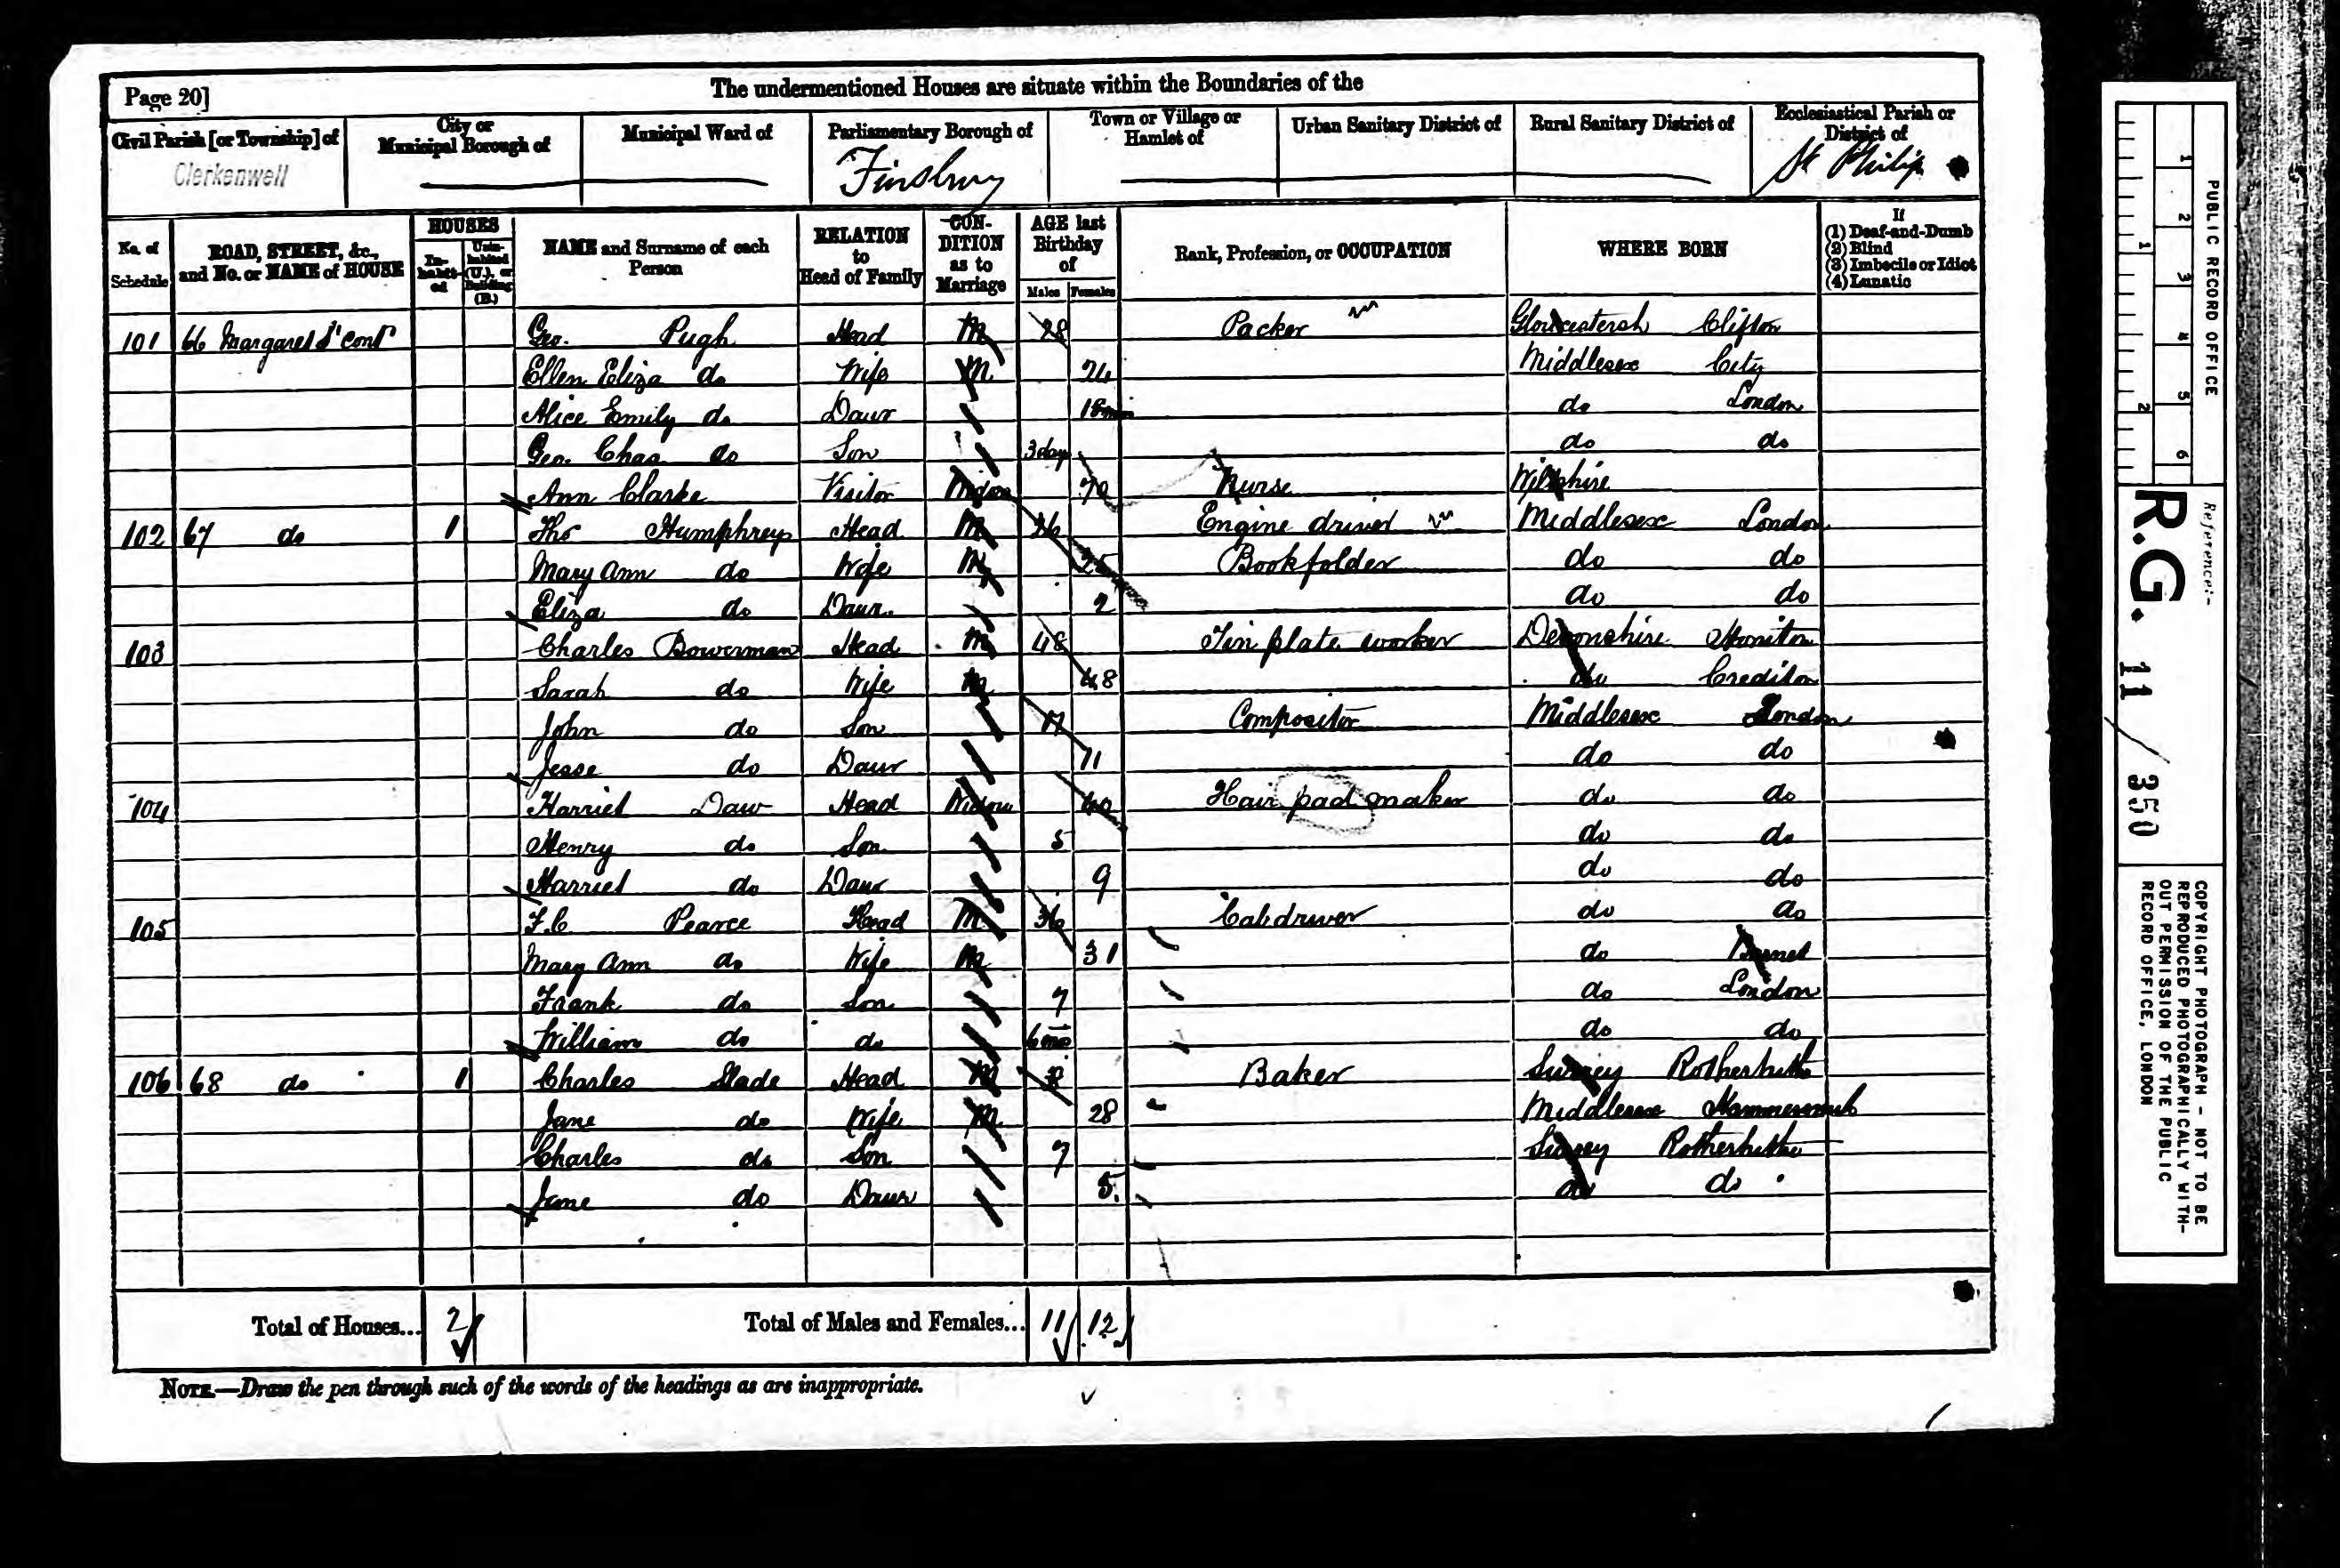 Page 20]
The undermentioned Houses are situate within the Boundaries of the
Civil Parish [or Township] of
City or Municipal Borough of
Municipal Ward of
Parliamentary Borough of
Town or Village or Hamlet of
Urban Sanitary District of
Rural Sanitary District of
Ecclesiastical Parish or District of
Clerkenwell Finsbury St Philip
No. of Schedule
ROAD, STREET, &c., and No. or NAME of HOUSE
HOUSES
In-habit-ed
Unin-habited (U.), or Building (B.)
NAME and Surname of each Person
RELATION to Head of Family
CON-DITION as to Marriage
AGE last Birthday of
Males Females
Rank, Profession, or OCCUPATION
WHERE BORN
If
(1) Deaf-and-Dumb
(2) Blind
(3) Imbecile or Idiot
(4) Lunatic
101 66 Margaret St cont Geo. Pugh Head M 28 Packer Gloucestersh Clifton
Ellen Eliza do Wife M 24 Middlesex City
Alice Emily do Daur 18mo do London
Geo. Chas. do Son 3 day do do
Ann Clarke Visitor Widow 70 Nurse Wiltshire
102 67 do 1 Tho Humphreys Head M 26 Engine driver Middlesex London
Mary Ann do Wife M 25 Bookfolder do do
Eliza do Daur. 2 do do
103 Charles Bowerman Head M 48 Tin plate worker Devonshire Honiton
Sarah do Wife M 48 do Crediton
John do Son 17 Compositor Middlesex London
Jesse do Daur 11 do do
104 Harriet Daw Head Widow 40 Hair pad maker do do
Henry do Son 5 do do
Harriet do Daur 9 do do
105 F.C Pearce Head M 36 Cab driver do do
Mary Ann do Wife M 31 do Barnet
Frank do Son 7 do London
William do do 6 mo do do
106 68 do 1 Charles Slade Head M Baker Surrey Rotherhithe
Jane do Wife M 28 Middlesex Hammersmith
Charles do Son 7 Surrey Rotherhithe
Jane do Daur 5. do do
Total of Houses... 2
Total of Males and Females... 11 12
NOTE.—Draw the pen through such of the words of the headings as are inappropriate.
PUBLIC RECORD OFFICE
1 2 3 4 5 6
1 2
Reference:-
R.G. 11 / 350
COPYRIGHT PHOTOGRAPH - NOT TO BE
REPRODUCED PHOTOGRAPHICALLY WITH-
OUT PERMISSION OF THE PUBLIC
RECORD OFFICE, LONDON